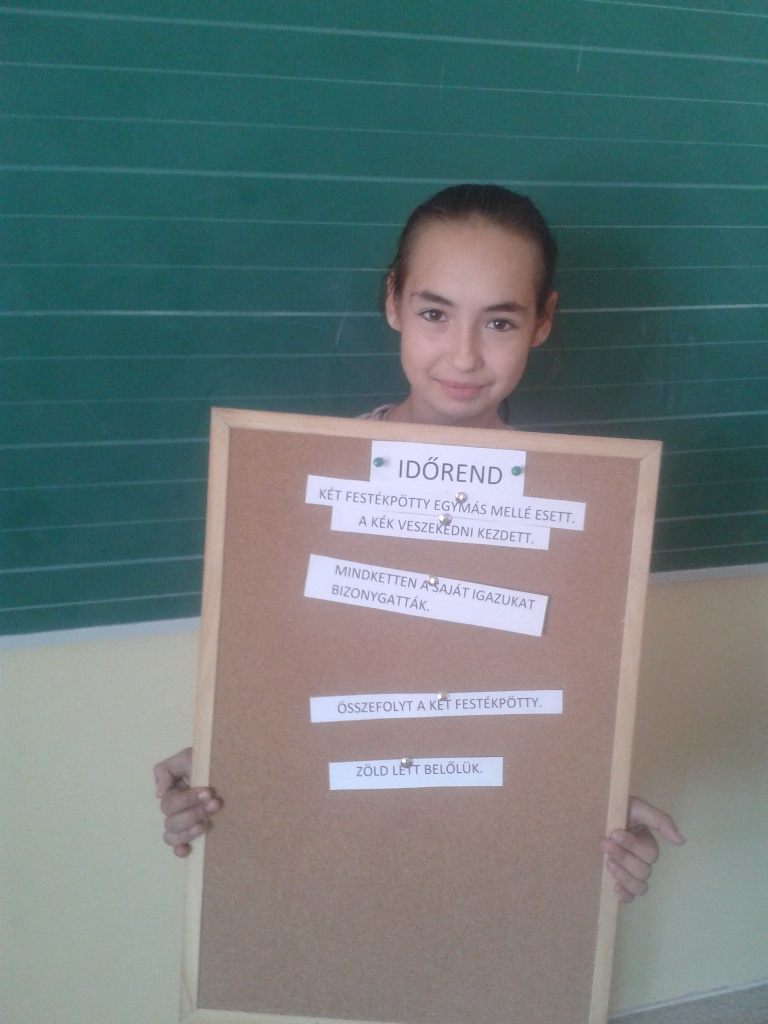 IDŐREND
KÉT FESTÉKPÖTTY EGYMÁS MELLÉ ESETT.
A KÉK VESZEKEDNI KEZDETT.
MINDKETTEN A SAJÁT IGAZUKAT
BIZONYGATTÁK.
ÖSSZEFOLYT A KÉT FESTÉKPÖTTY.
ZÖLD LETT BELŐLÜK.